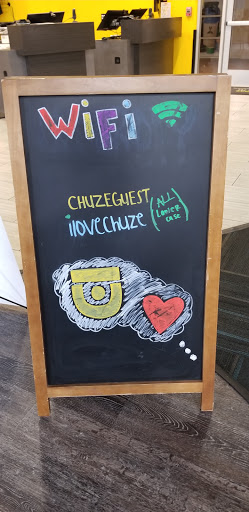 WiFi
CHUZEGUEST
ilovechuze (ALL
LOWER
CASE)